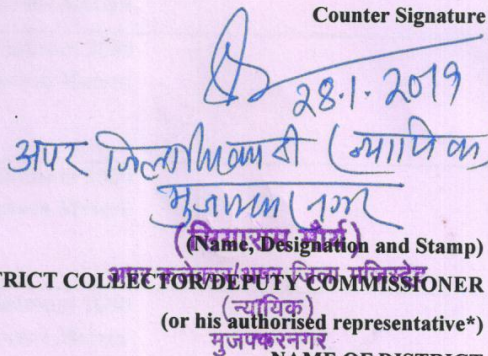 Counter Signature
28.1.2019
अपर जिलाधिकारी (न्यायिक)
मुजफ्फरनगर
(सियाराम मौर्य)
(Name, Designation and Stamp)
अपर कलेक्टर/अपर जिला मजिस्ट्रेट
TRICT COLLECTOR/DEPUTY COMMISSIONER
(न्यायिक)
(or his authorised representative*)
मुजफ्फरनगर
NAME OF DISTRICT